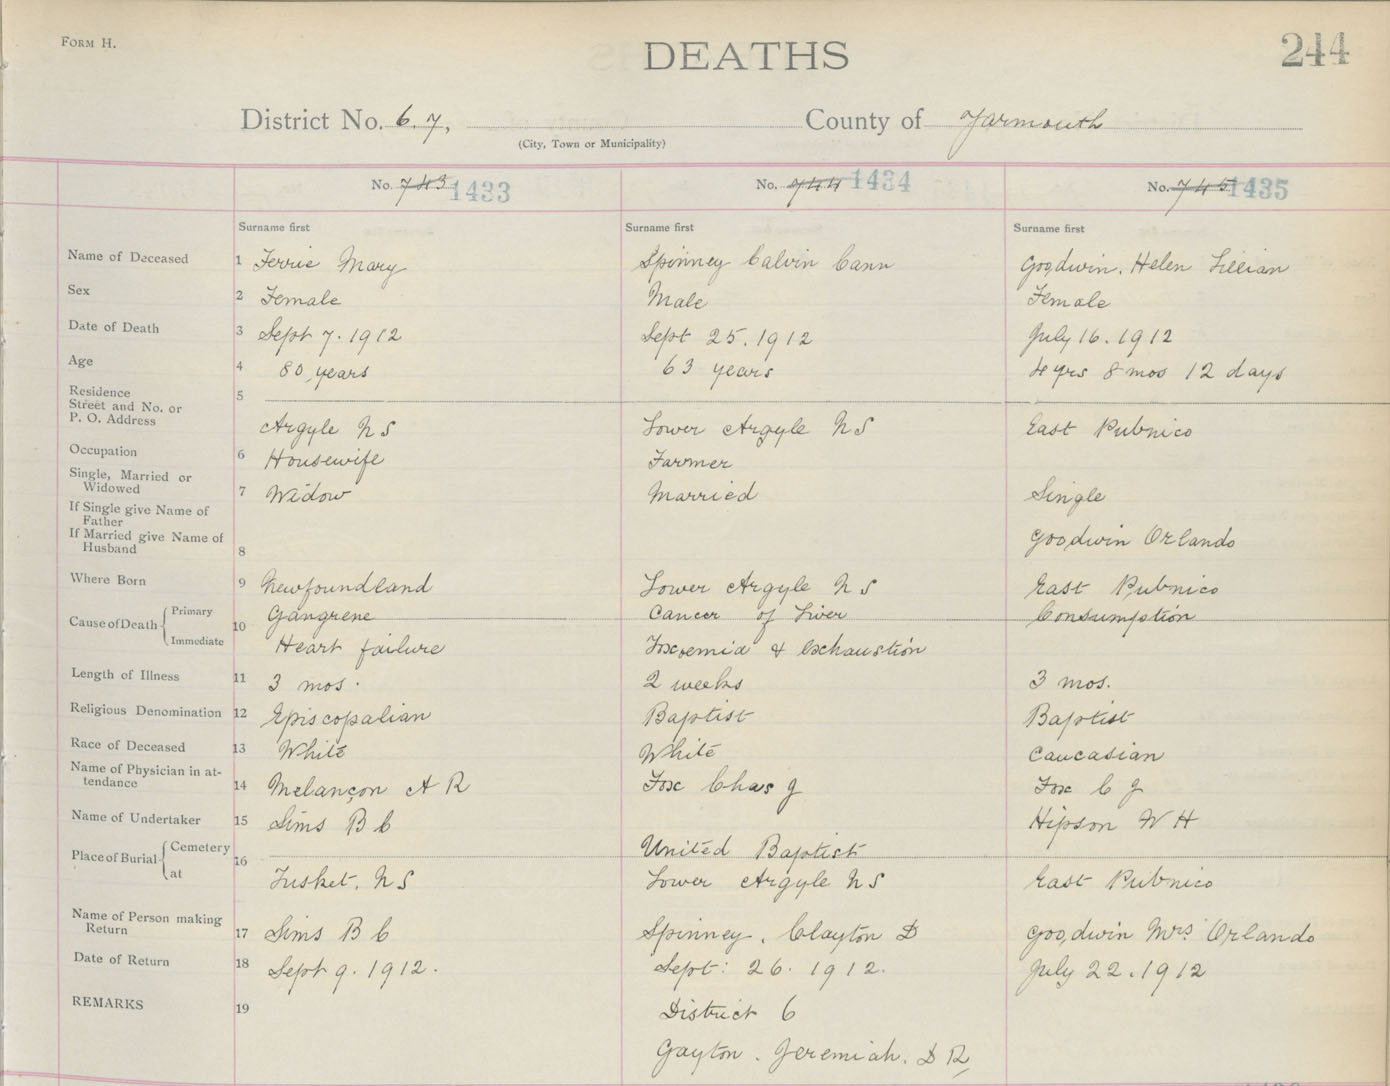 FORM H.
DEATHS
244
District No. 6.7,
County of Yarmouth
(City, Town or Municipality)
No. 743 1433
No. 744 1434
No. 745 1435
Surname first
Surname first
Surname first
Name of Deceased 1 Ferrie Mary Spinney Calvin Cann Goodwin. Helen Lillian
Sex 2 Female Male Female
Date of Death 3 Sept 7. 1912 Sept 25. 1912 July 16. 1912
Age 4 80 years 63 years 4 yrs 8 mos 12 days
Residence 5
Street and No. or
P. O. Address Argyle N S Lower Argyle N S East Pubnico
Occupation 6 Housewife Farmer
Single, Married or
Widowed 7 Widow Married Single
If Single give Name of
Father
If Married give Name of Goodwin Orlando
Husband 8
Where Born 9 Newfoundland Lower Argyle N S East Pubnico
Cause of Death Primary 10 Gangrene Cancer of Liver Consumption
Immediate Heart failure Toxoemia & Exhaustion
Length of Illness 11 3 mos. 2 weeks 3 mos.
Religious Denomination 12 Episcopalian Baptist Baptist
Race of Deceased 13 White White Caucasian
Name of Physician in at-
tendance 14 Melançon A R Fox Chas J Fox C J
Name of Undertaker 15 Sims B C Hipson W H
Place of Burial Cemetery 16 United Baptist
at Tusket. N S Lower Argyle N S East Pubnico
Name of Person making
Return 17 Sims B C Spinney. Clayton D Goodwin Mrs Orlando
Date of Return 18 Sept 9. 1912. Sept: 26. 1912. July 22. 1912
REMARKS 19 District 6
Gayton. Jeremiah. D R,